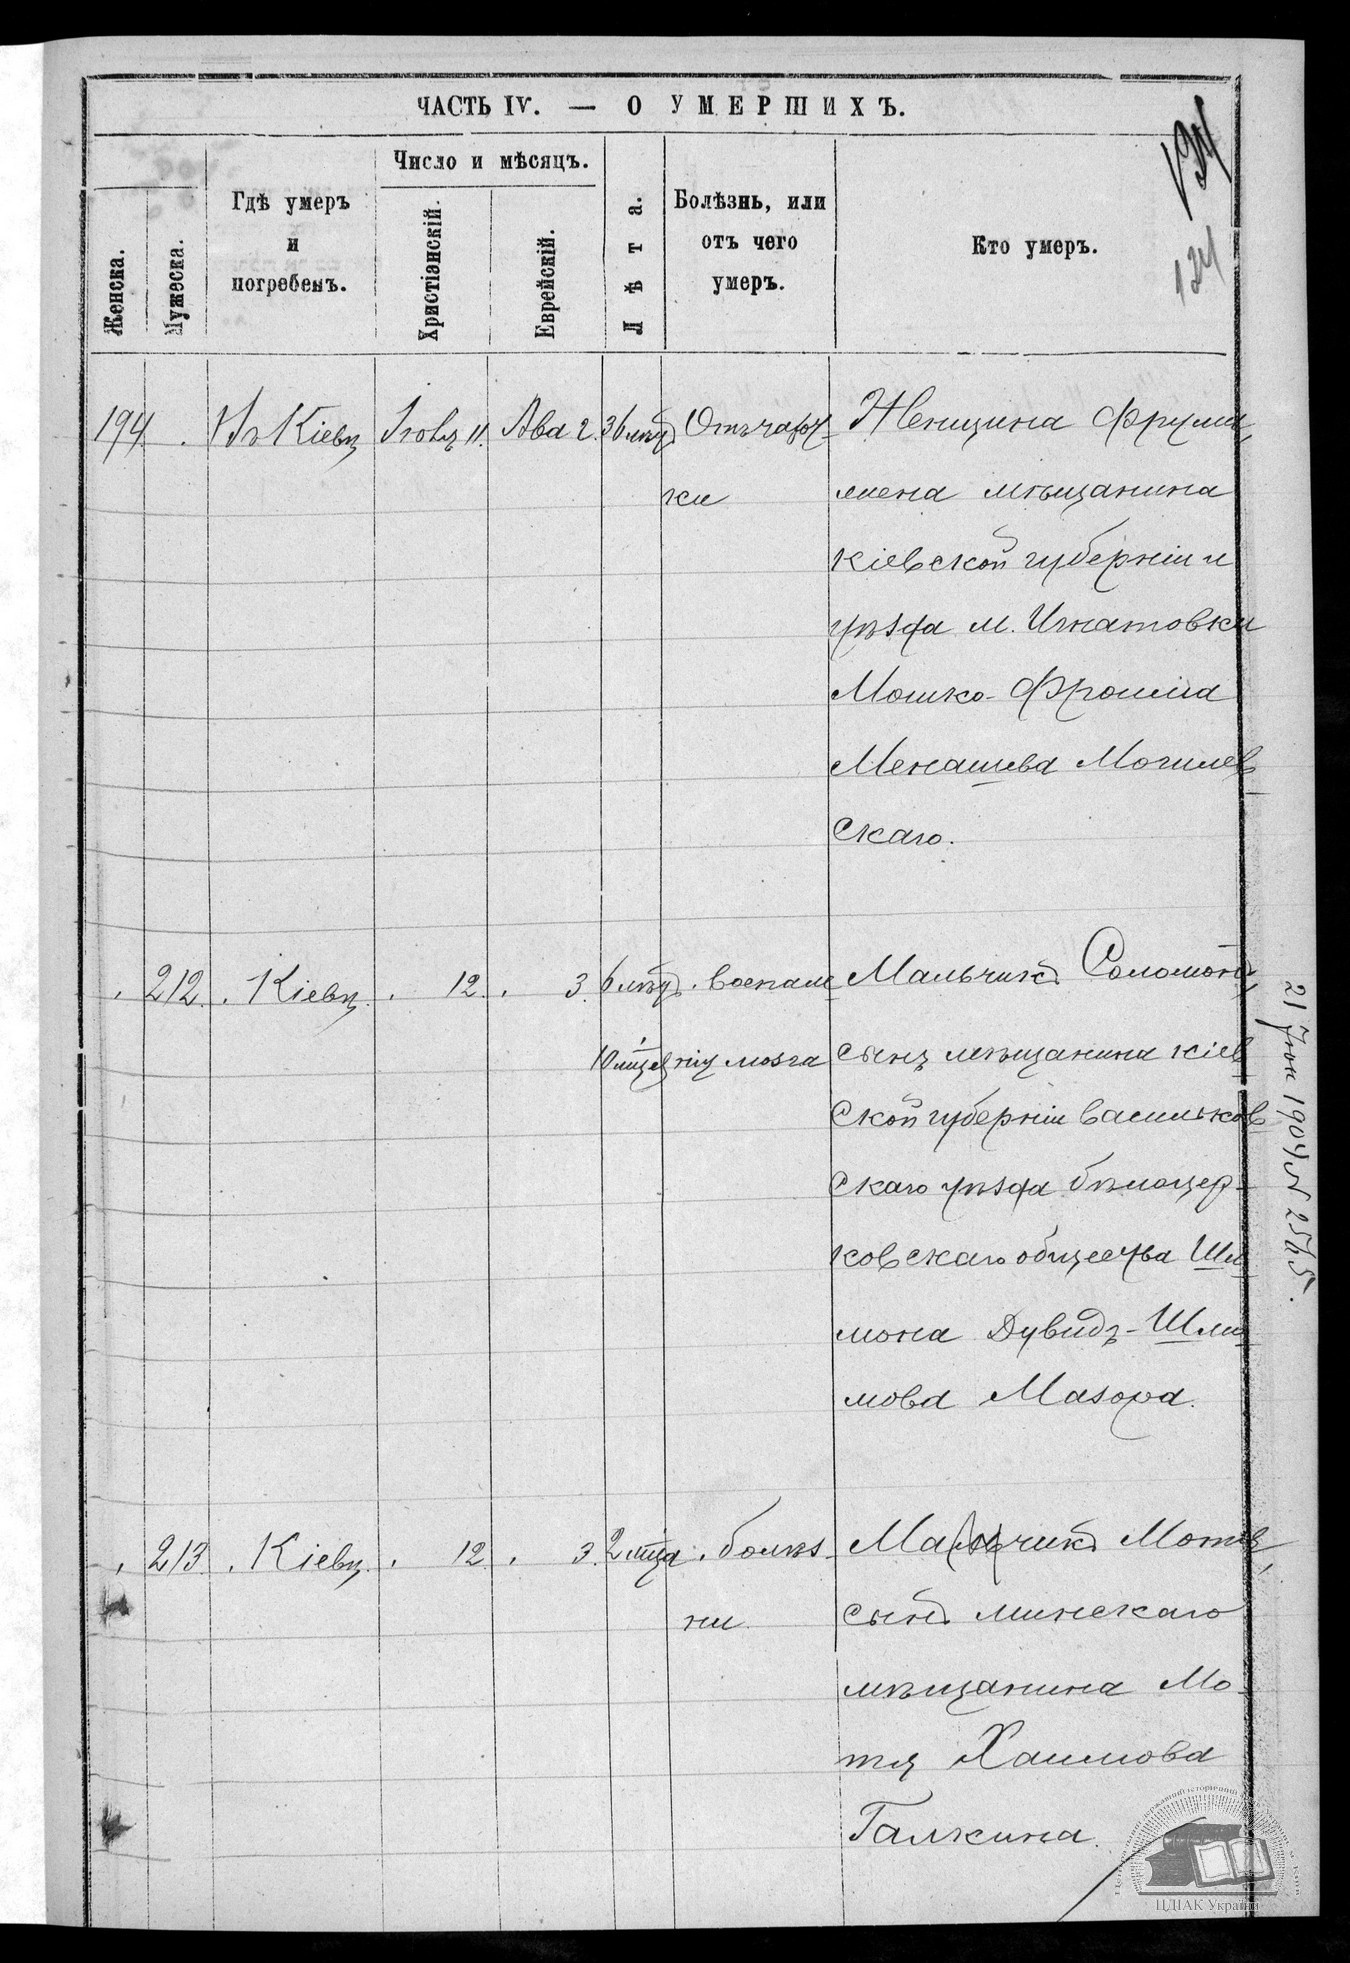 ЧАСТЬ IV. — О УМЕРШИХЪ.
Женска.
Мужеска.
Гдѣ умеръ
и
погребенъ.
Число и мѣсяцъ.
Христіанскій.
Еврейскій.
Лѣта.
Болѣзнь, или
отъ чего
умеръ.
Кто умеръ.
134
194. Въ Кіевѣ Іюля 11. Ава 2. 36 лѣтъ Отъ чахот- Женщина Фрума,
ки жена мѣщанина
Кіевской губерніи и
уѣзда м. Игнатовки
Мошко-Фроима
Менашева Могилев
скаго.
212. Кіевѣ. 12. 3. 6 лѣтъ воспале Мальчикъ Соломонъ,
10 мѣсяц нія мозга сынъ мѣщанина Кіев
ской губерніи Васильков
скаго уѣзда Бѣлоцер-
ковскаго общества Ши
мона Дувидъ-Шли
мова Мазора.
213. Кіевѣ. 12. 3. 2 мѣца болѣз- Мальчикъ Мотель,
ни. сынъ минскаго
мѣщанина Мо-
тя Хаимова
Галкина.
21 Іюн 1904 N 2545.
ЦДІАК України